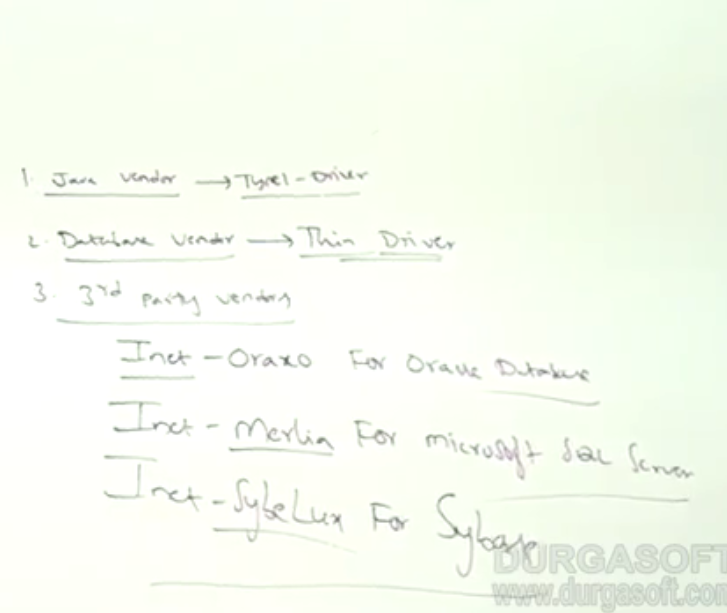 1. Java vendor → Type1-Driver
2. Database vendor → Thin Driver
3. 3rd party vendors
Inet - Oraxo For Oracle Database
Inet - Merlia For microsoft SQL Server
Inet - SybeLux For Sybase
DURGASOFT
www.durgasoft.com